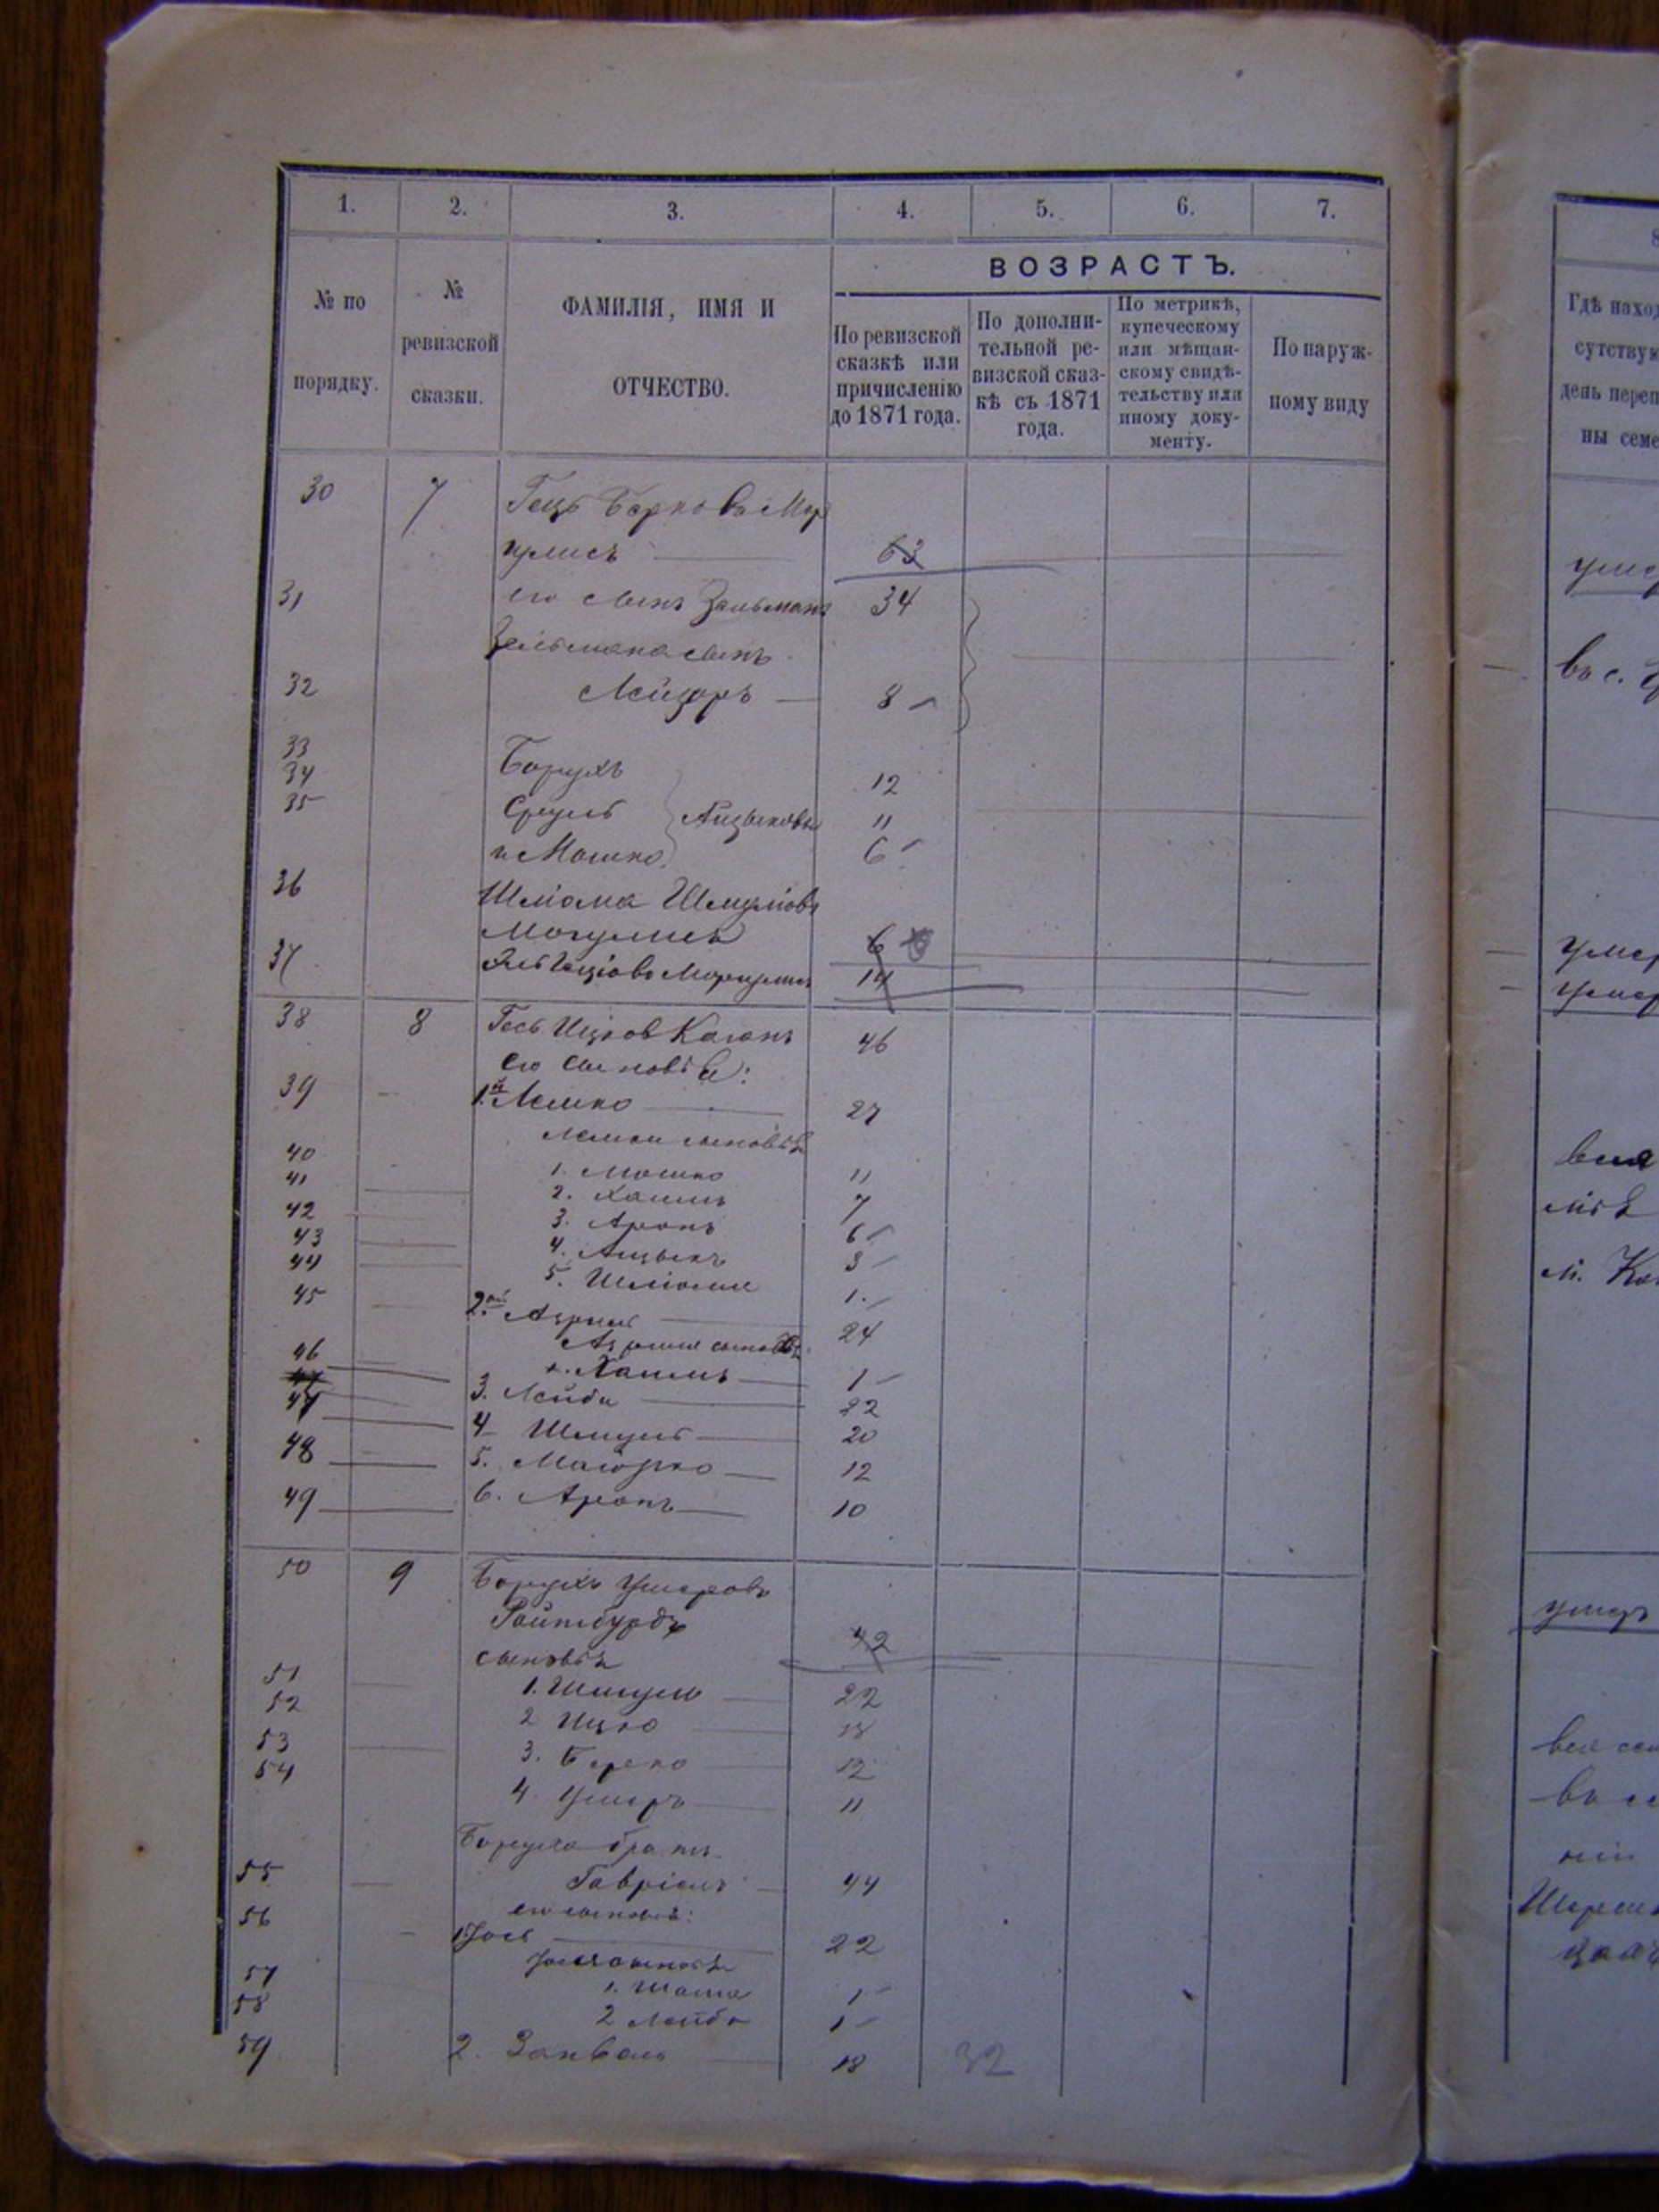 1. 2. 3. 4. 5. 6. 7.
№ по порядку.
№ ревизской сказки.
ФАМИЛІЯ, ИМЯ И ОТЧЕСТВО.
ВОЗРАСТЪ.
По ревизской сказкѣ или причисленію до 1871 года.
По дополнительной ревизской сказкѣ съ 1871 года.
По метрикѣ, купеческому или мѣщанскому свидѣтельству или иному документу.
По наружному виду
30 7 Гецъ Берковъ Мар
гулисъ 63
31 его сынъ Зельманъ 34
Зельмана сынъ
32 Лейзоръ 8
33 Борухъ 12
34 Сруль Айзыковы 11
35 и Мошко 6
36 Шліома Шмуліовъ
6
37 Маргулисъ 14
38 8 Гесь Ицков Каганъ 46
его сыновья:
39 1й Лейко 27
сыновья
40 1. Мошко 11
41 2. Хаимъ 7
42 3. Аронъ 6
43 4. Айзыкъ 3
44 5. Шліома 1
45 2ой Азриль 24
Азриля сыновья
46 Хаимъ 1
47 3. Лейба 22
4 Шмуль 20
48 5. Маіорко 12
49 6. Аронъ 10
50 9 Борухъ Ушеровъ
Ройтбурдъ 42
сыновья
51 1. Шмуль 22
52 2 Ицко 18
53 3. Берко 12
54 4. Ушеръ 11
Боруха братъ
55 Гавріель 44
его сыновья:
56 1. Іось 22
сыновья
57 1. 1
58 2 Лейба 1
59 2. Занвель 18 32
8
Гдѣ наход
сутствую
день переп
ны семе
умер
въ с.
умер
умер
вся
м. Ка
умеръ
вся сем